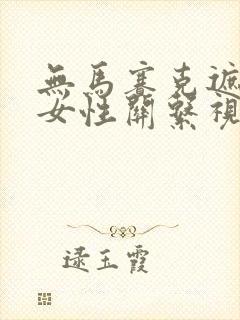 無馬賽克遮
女性關繫視
逯玉霞